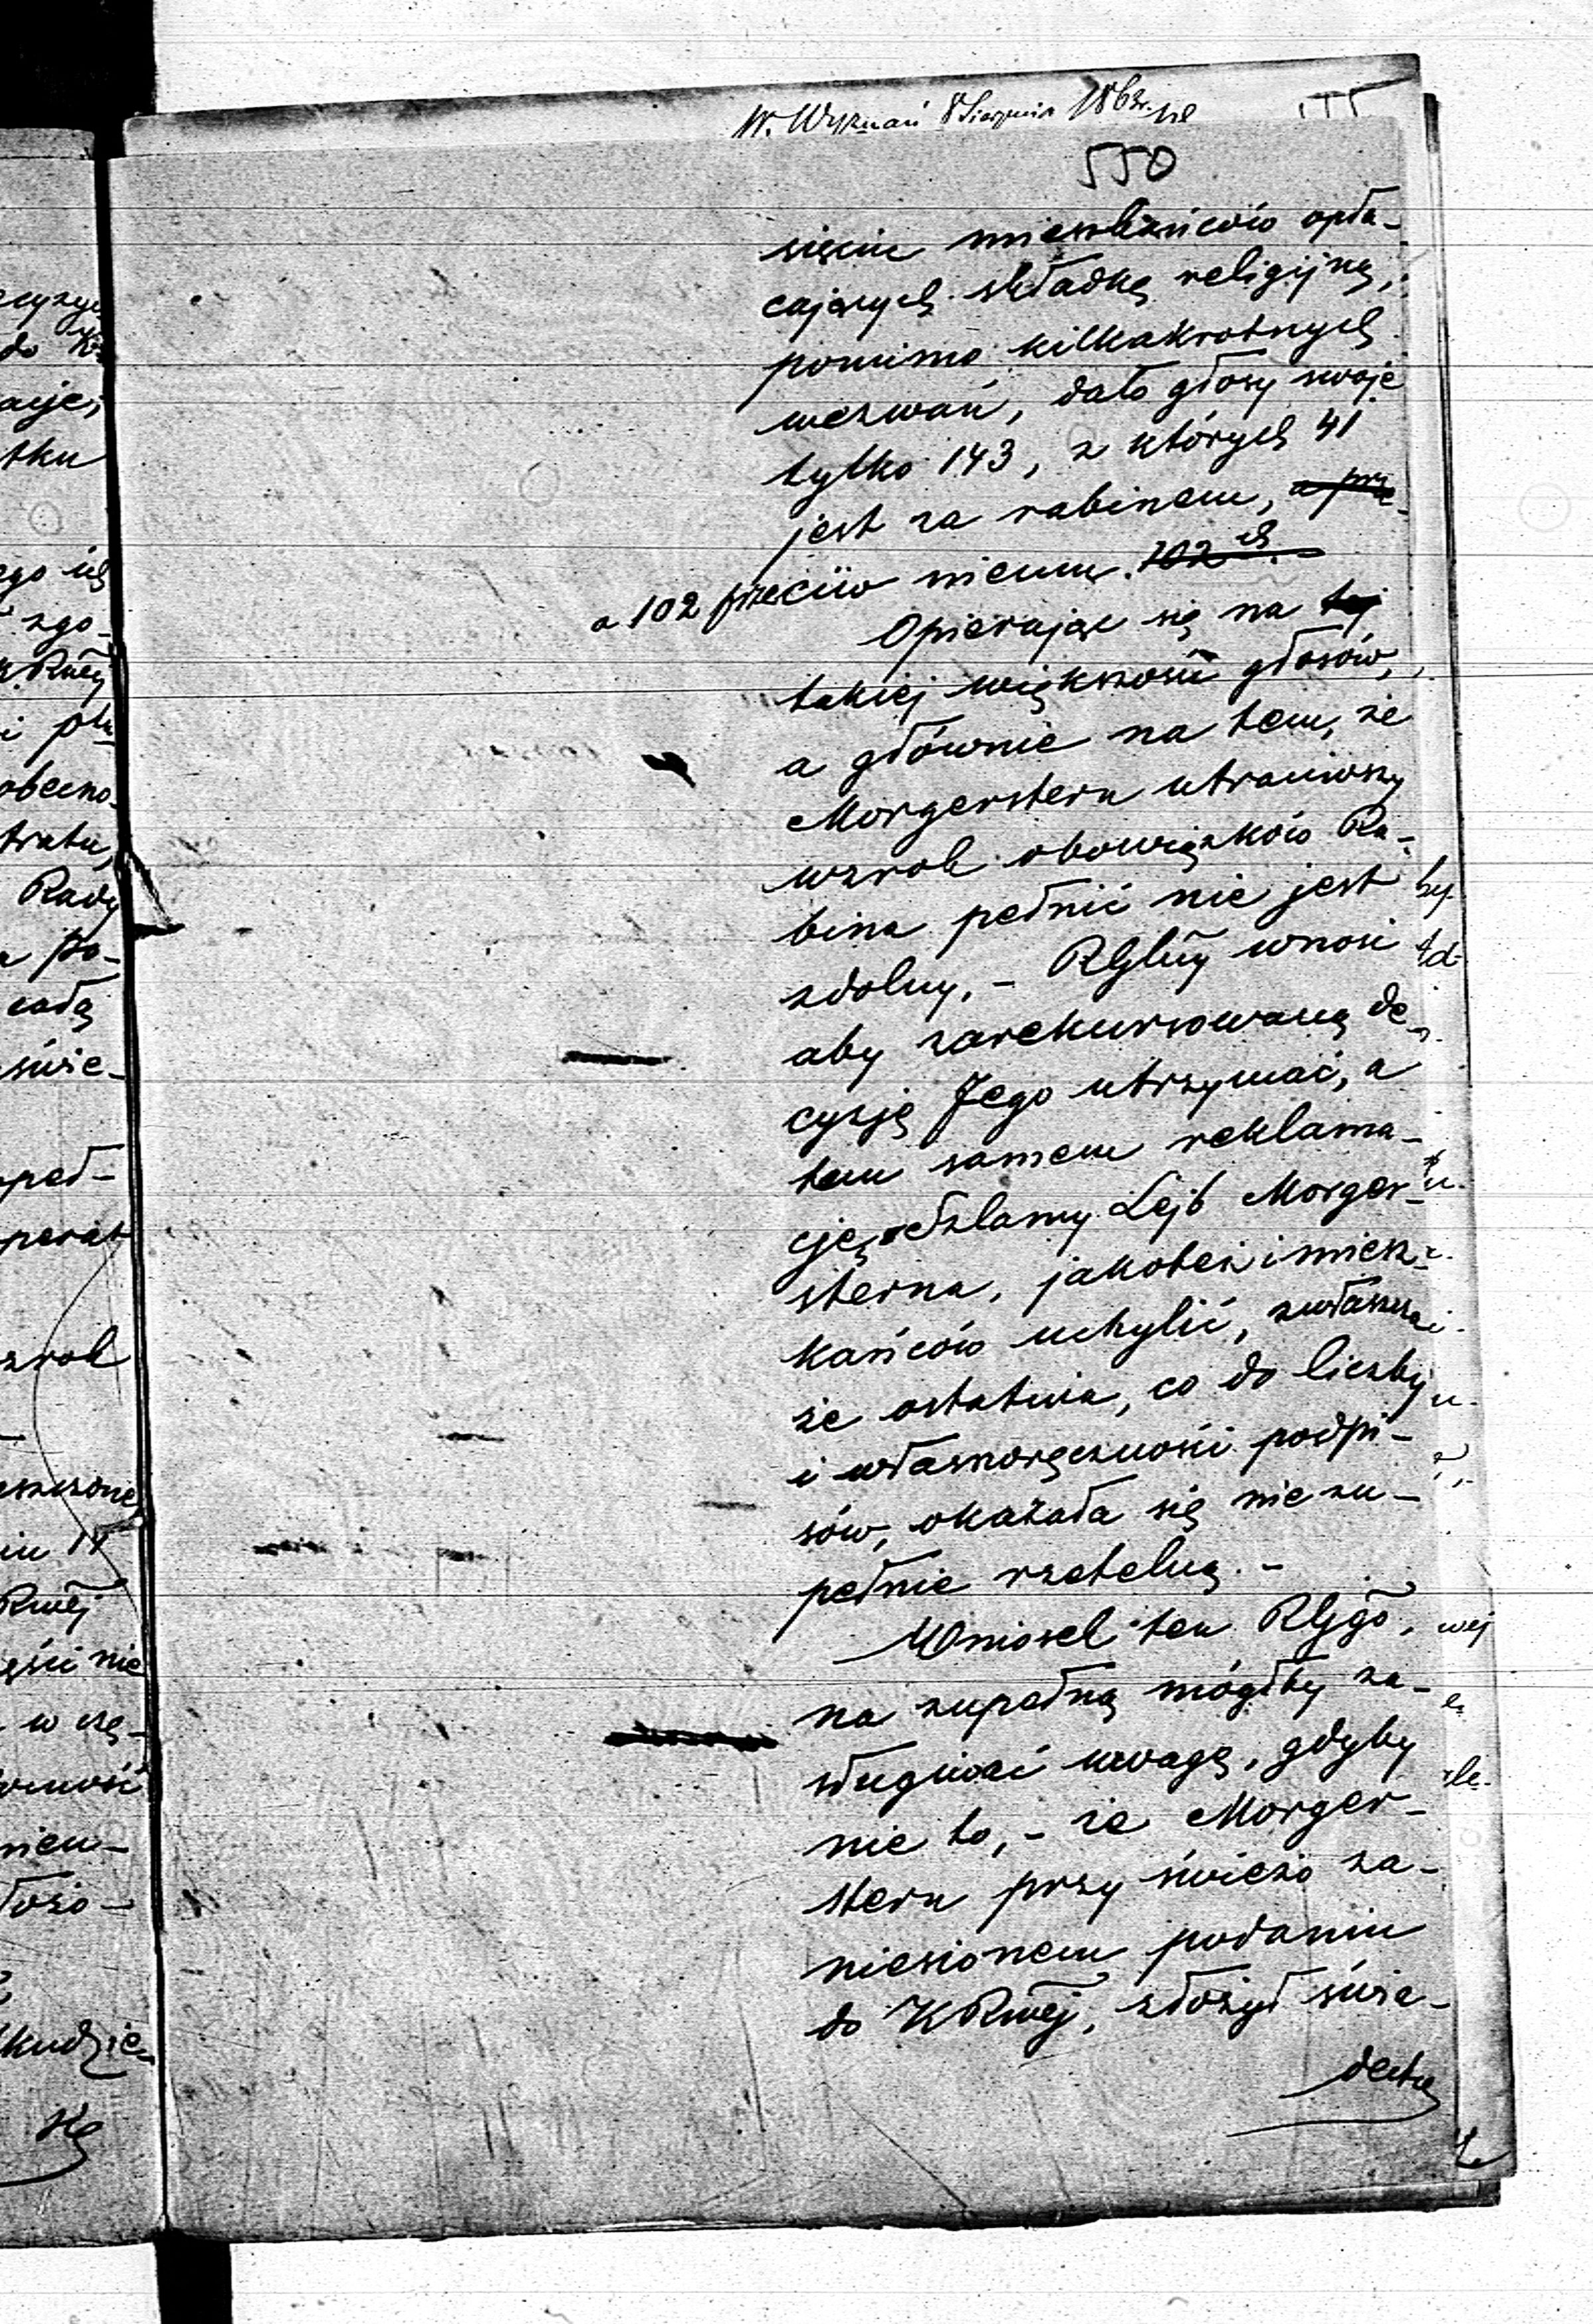 W. Wyznań 8 Sierpnia 1863r.
550
sięciu mieszkańców opła-
cających składkę religijną,
pomimo kilkakrotnych
wezwań, dało głosy swoje
tylko 143, z których 41
jest za rabinem, a prze-
a 102 przeciw niemu. 102ch.-
Opierając się na tej
takiej większości głosów,
a głównie na tem, że
Morgenstern utraciwszy
wzrok obowiązków Ra-
bina pełnić nie jest
zdolny, - RGlny wnosi
aby zarekursowaną de-
cyzję Jego utrzymać, a
tem samem reklama-
cję Szlamy Lejb Morgen-
sterna, jakoteż i miesz-
kańców uchylić, zwłaszcza
że ostatnia, co do liczby
i własnoręczności podpi-
sów, okazała się nie zu-
pełnie rzetelną. -
Wniosek ten RGlgo,
na zupełną mógłby za-
sługiwać uwagę, gdyby
nie to, - że Morgen-
stern przy świeżo za-
niesionem podaniu
do KRwej, złożył świa-
dectwo